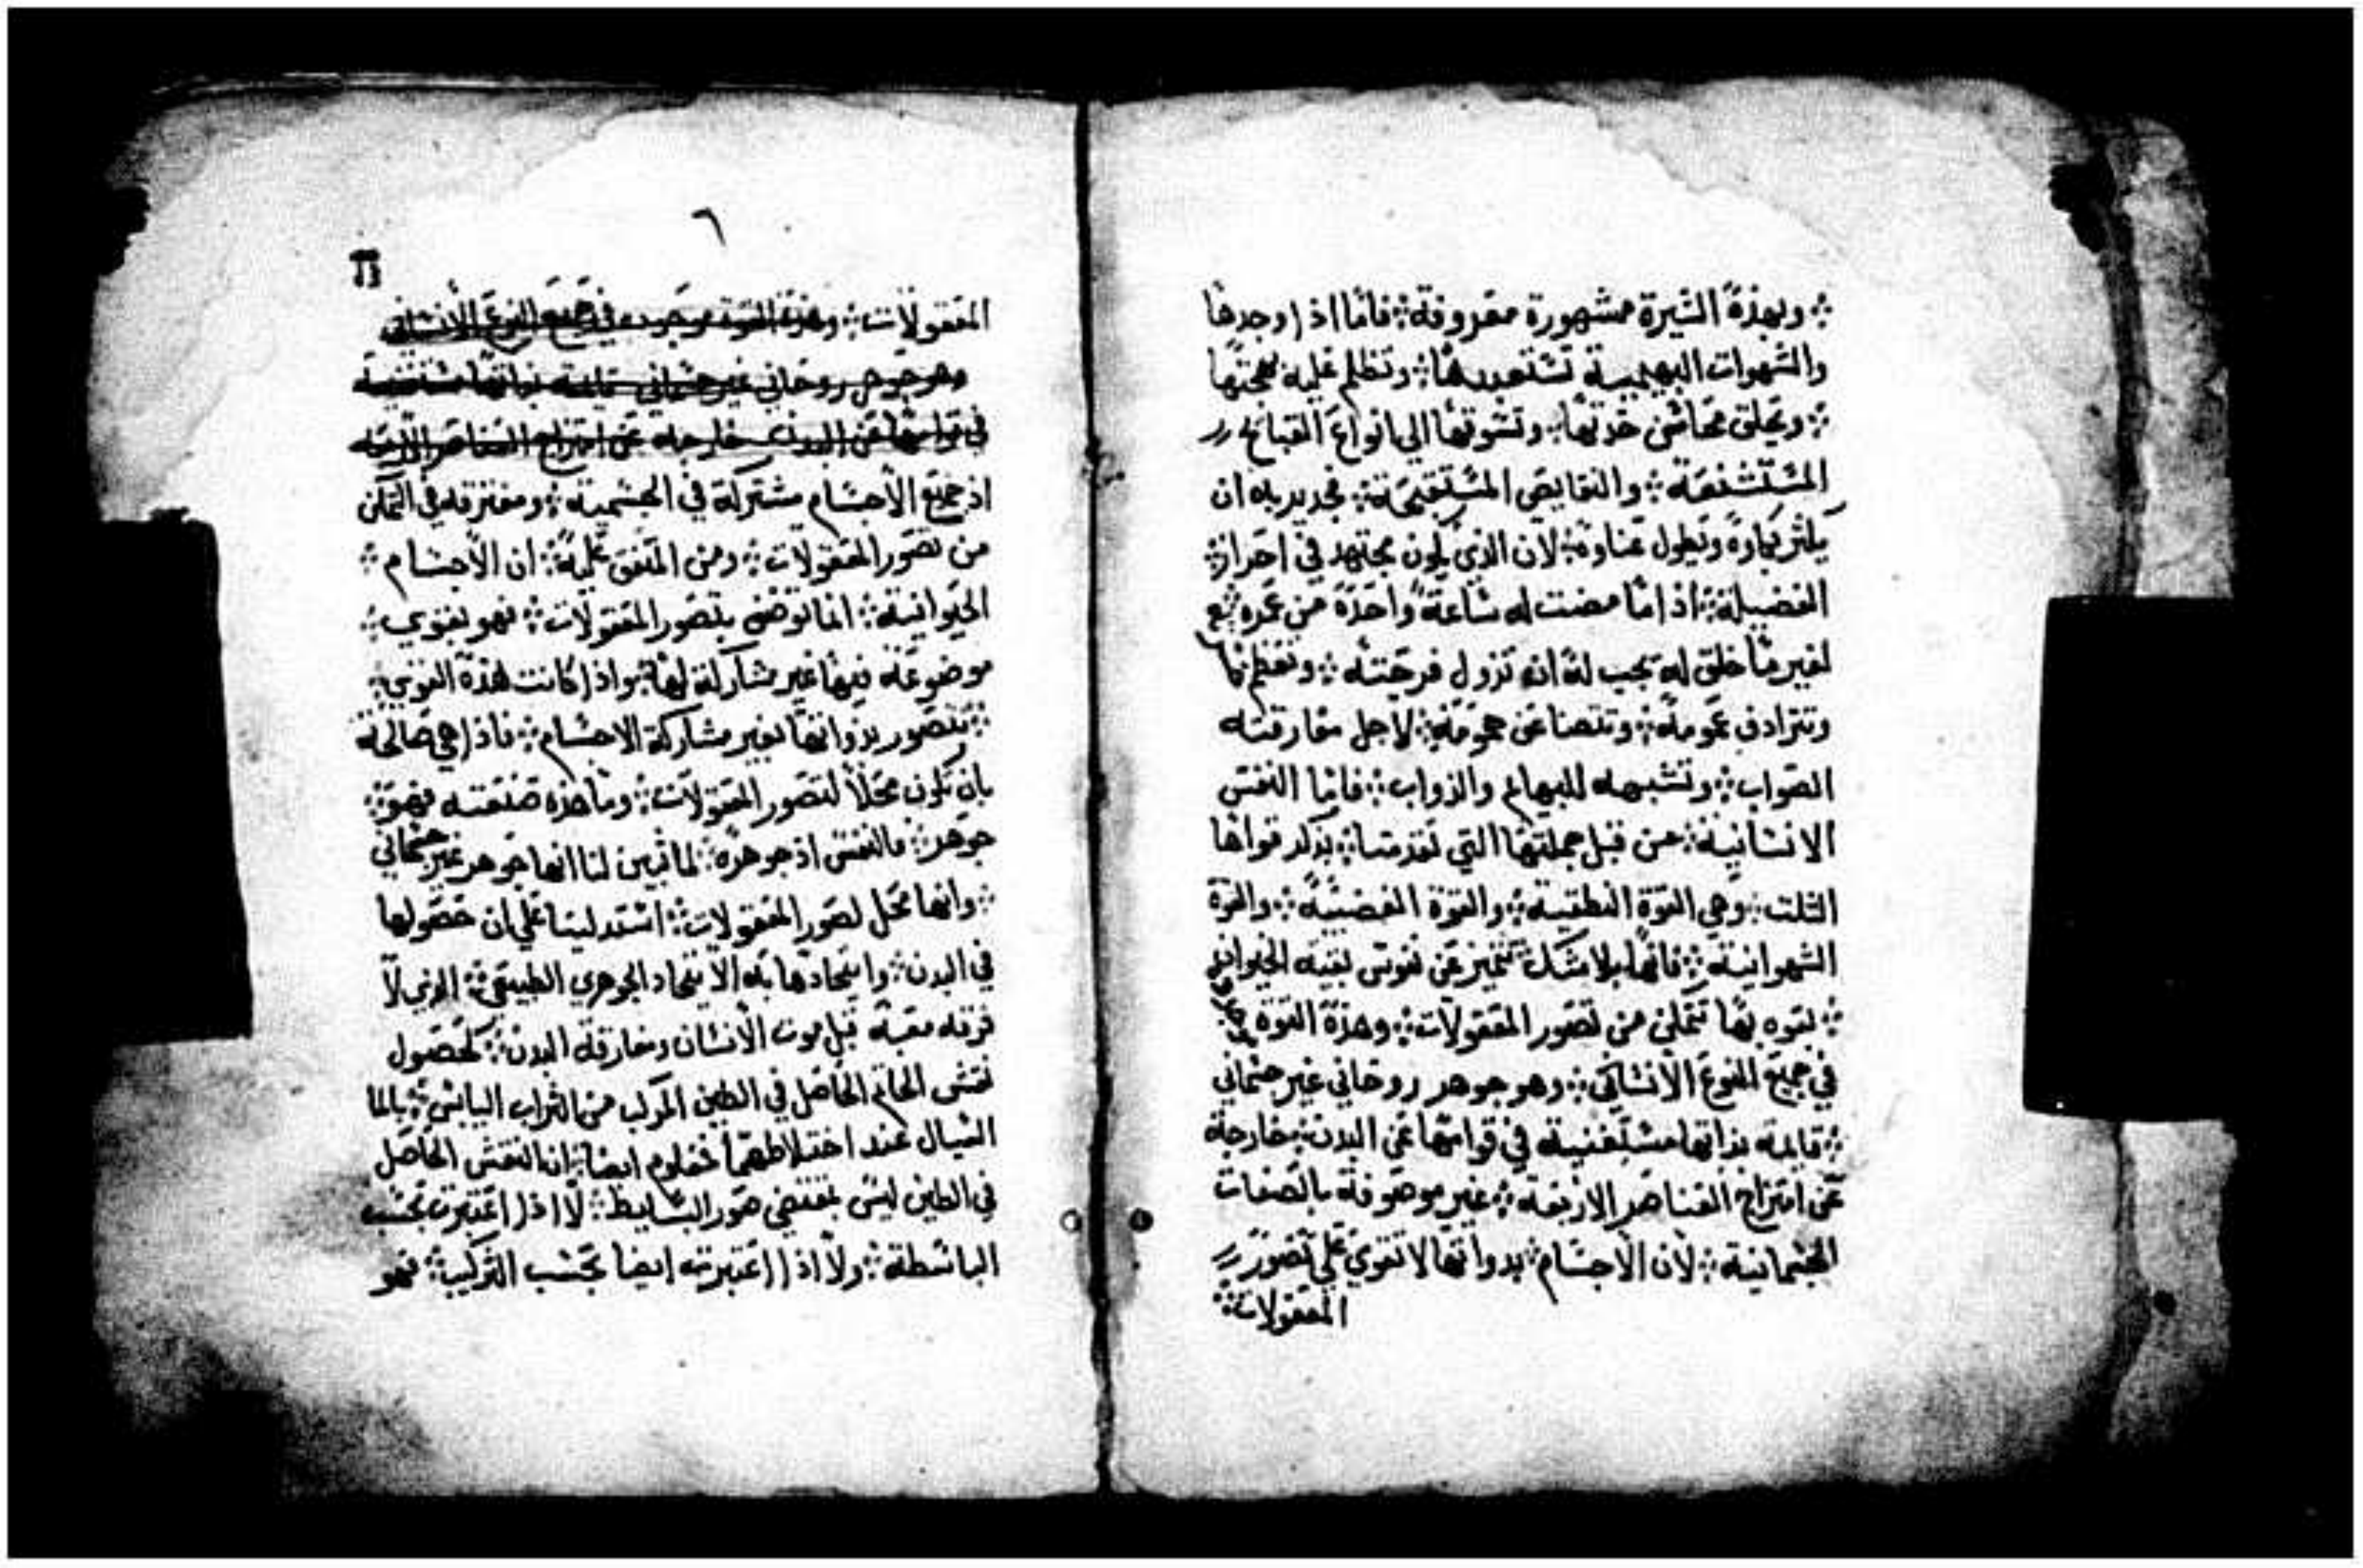 وبهذة السيرة مشهورة معروفة فاما اذا وجدها
والشهوات البهيمية تستعبدها وتظلم عليه بهجتها
ويخلق محاسن حدتها وتشوقها الي انواع القبايح
المستشنعة والنقايص المستقبحة فجدير به ان
يكثر بكاوة ويطول عناوة لان الذي يكون مجتهد في احراز
الفضيلة اذا ما مضت له ساعة واحدة من عمره
لغير ما خلق له يجب لة انه تزول فرحته وتعظم
وتترادف غمومة وتتضاعف همومة لاجل مفارقته
الصواب وتشبهه للبهايم والدواب فاما النفس
الانسانية من قبل جملتها التي تقدمت بذكر قواها
الثلت وهي القوة النطقية والقوة الغضبية والقوة
الشهوانية فانها بلا شك تتميز عن نفوس بقية الحيوان
بقوه بها تتمكن من تصور المعقولات وهذة القوة
في جميع النوع الانساني وهو جوهر روحاني غير جسماني
قايمة بذاتها مستغنيه في قوامها عن البدن خارجة
عن امتزاج العناصر الاربعه غير موصوفة بالصفات
الجسمانية لان الاجسام بدواتها لا تقوي علي تصور
المعقولات
٦
المعقولات وهذة القوة موجوده في جميع النوع الانساني
وهو جوهر روحاني غير جسماني قايمه بذاتها مستغنيه
في قوامها عن البدن خارجه عن امتزاج العناصر الاربعه
اذ جميع الاجسام مشتركة في الجسمية ومفترقه في التمكن
من تصور المعقولات ومن المتفق علية ان الاجسام
الحيوانية انما توصف بتصور المعقولات فهو بقوي
موضوعة فيها غير مشاركة لها واذا كانت هذة القوي
تتصور بذواتها بغير مشاركة الاجسام فاذا هي صالحة
بان تكون محلا لتصور المعقولات وما هذه صنعته فهو
جوهر فالنفس اذ جوهرة لما تبين لنا انها جوهر غير جسماني
وانها محل لصور المعقولات استدلينا علي ان حصولها
في البدن واتحادها به الاتحاد الجوهري الطبيعي الذي لا
فرقه معبة قبل موت الانسان ومفارقة البدن كحصول
نقش الخاتم الحاصل في الطين المركب من التراب اليابس بالما
السيال عند اختلاطهما فمعلوم ايضا ان النقش الحاصل
في الطين ليس بمقتضي صور البسايط لا اذا اعتبرت بحسب
الباسطة ولا اذا اعتبرته ايضا بحسب التركيب فهو